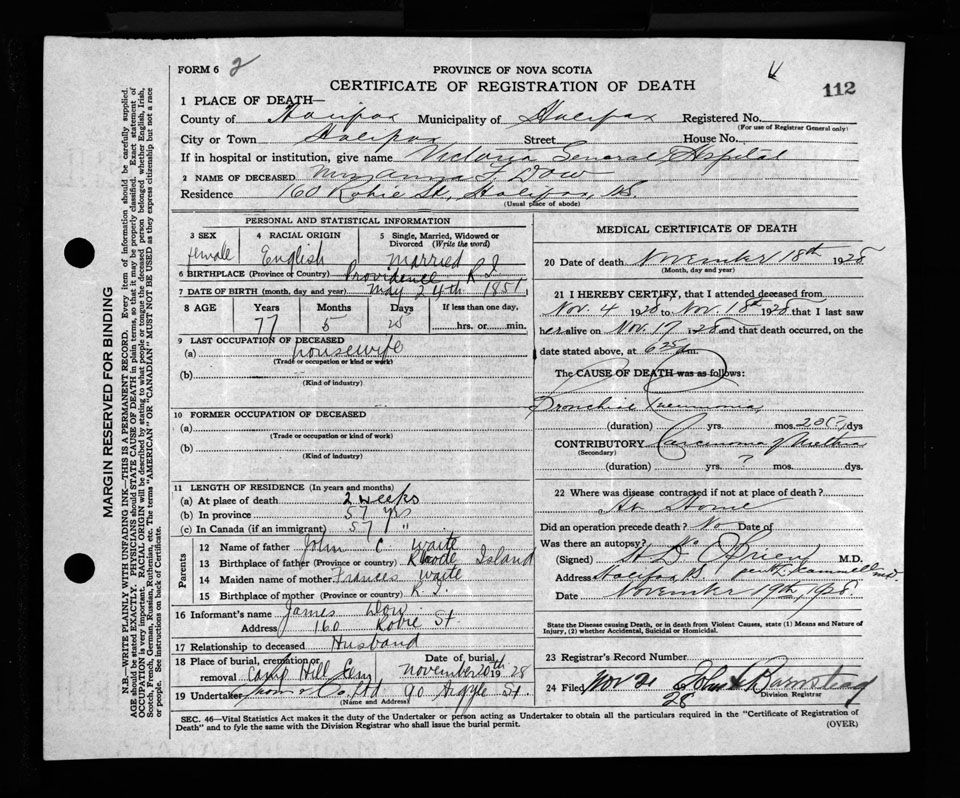 FORM 6 2
PROVINCE OF NOVA SCOTIA
CERTIFICATE OF REGISTRATION OF DEATH
112
1 PLACE OF DEATH—
County of Halifax Municipality of Halifax Registered No.
(For use of Registrar General only)
City or Town Halifax Street House No.
If in hospital or institution, give name Victoria General Hospital
2 NAME OF DECEASED Mrs Anna F. Dow
Residence 160 Robie St, Halifax, N.S.
(Usual place of abode)
PERSONAL AND STATISTICAL INFORMATION
3 SEX female
4 RACIAL ORIGIN English
5 Single, Married, Widowed or Divorced (Write the word) Married
6 BIRTHPLACE (Province or Country) Providence R I
7 DATE OF BIRTH (month, day and year) May 24th 1851
8 AGE Years Months Days If less than one day,
77 5 25 hrs. or min.
9 LAST OCCUPATION OF DECEASED
(a) housewife
(Trade or occupation or kind or work)
(b)
(Kind of industry)
10 FORMER OCCUPATION OF DECEASED
(a)
(Trade or occupation or kind of work)
(b)
(Kind of industry)
11 LENGTH OF RESIDENCE (In years and months)
(a) At place of death 2 weeks
(b) In province 57 yrs
(c) In Canada (if an immigrant) 57 "
Parents
12 Name of father John C Waite
13 Birthplace of father (Province or country) Rhode Island
14 Maiden name of mother Frances Waite
15 Birthplace of mother (Province or country) R. I.
16 Informant's name James Dow
Address 160 Robie St.
17 Relationship to deceased Husband
18 Place of burial, cremation or removal Camp Hill Cemy Date of burial November 20th 1928
19 Undertaker Snow & Co Ltd 90 Argyle St.
(Name and Address)
MEDICAL CERTIFICATE OF DEATH
20 Date of death November 18th 1928
(Month, day and year)
21 I HEREBY CERTIFY, that I attended deceased from
Nov. 4 1928 to Nov 18th 1928 that I last saw
her alive on Nov. 17 1928 and that death occurred, on the
date stated above, at 6 25 m.
The CAUSE OF DEATH was as follows:
Bronchial Pneumonia
(duration) yrs. mos. dys
CONTRIBUTORY Carcinoma of Urethra
(Secondary)
(duration) yrs. ? mos. dys.
22 Where was disease contracted if not at place of death?
At Home
Did an operation precede death? No Date of
Was there an autopsy? No
(Signed) H D O'Brien M.D.
Address Halifax N.S.
Date November 19th, 1928.
State the Disease causing Death, or in death from Violent Causes, state (1) Means and Nature of Injury, (2) whether Accidental, Suicidal or Homicidal.
23 Registrar's Record Number
24 Filed Nov 21 28 Barnstead
Division Registrar
SEC. 46—Vital Statistics Act makes it the duty of the Undertaker or person acting as Undertaker to obtain all the particulars required in the "Certificate of Registration of
Death" and to fyle the same with the Division Registrar who shall issue the burial permit.
(OVER)
MARGIN RESERVED FOR BINDING
N.B.—WRITE PLAINLY WITH UNFADING INK—THIS IS A PERMANENT RECORD. Every item of information should be carefully supplied.
AGE should be stated EXACTLY. PHYSICIANS should STATE CAUSE OF DEATH in plain terms, so that it may be properly classified. Exact statement of
OCCUPATION is very important. RACIAL ORIGIN will be described by stating to what people or tongue the deceased person belonged whether English, Irish,
Scotch, French, German, Russian, Ruthenian, etc. The terms "AMERICAN" OR "CANADIAN" MUST NOT BE USED as they express citizenship but not a race
or people. See instructions on back of Certificate.